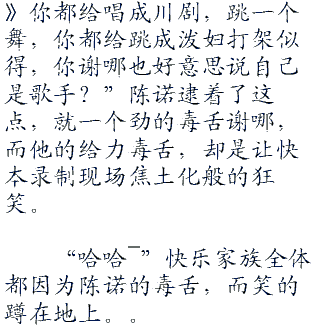 》你都给唱成川剧，跳一个
舞，你都给跳成泼妇打架似
得，你谢哪也好意思说自己
是歌手？”陈诺逮着了这
点，就一个劲的毒舌谢哪，
而他的给力毒舌，却是让快
本录制现场焦土化般的狂
笑。
“哈哈¯”快乐家族全体
都因为陈诺的毒舌，而笑的
蹲在地上。。